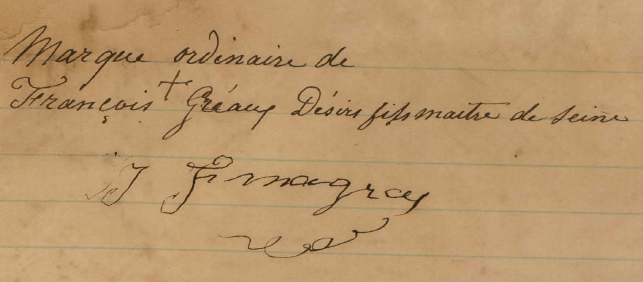 Marque ordinaire de
François + Gréaux Désiré fils maitre de seine